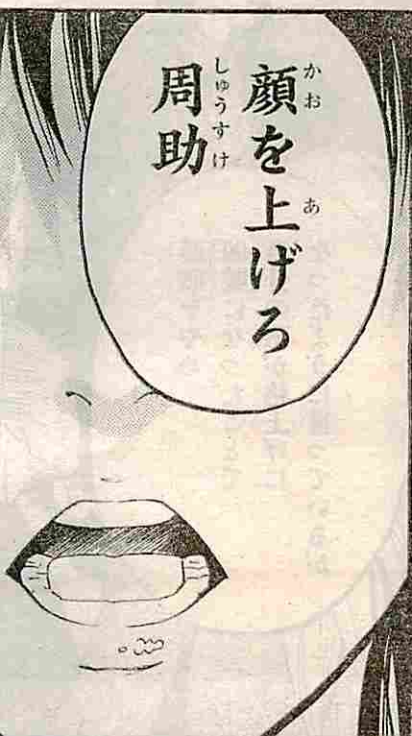 顔を上げろ
周助